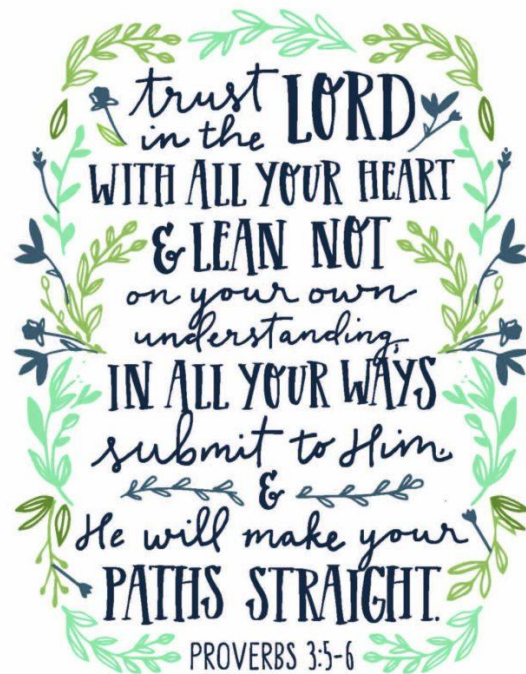 trust
in the LORD
WITH ALL YOUR HEART
& LEAN NOT
on your own
understanding,
IN ALL YOUR WAYS
submit to Him.
&
He will make your
PATHS STRAIGHT.
PROVERBS 3:5-6